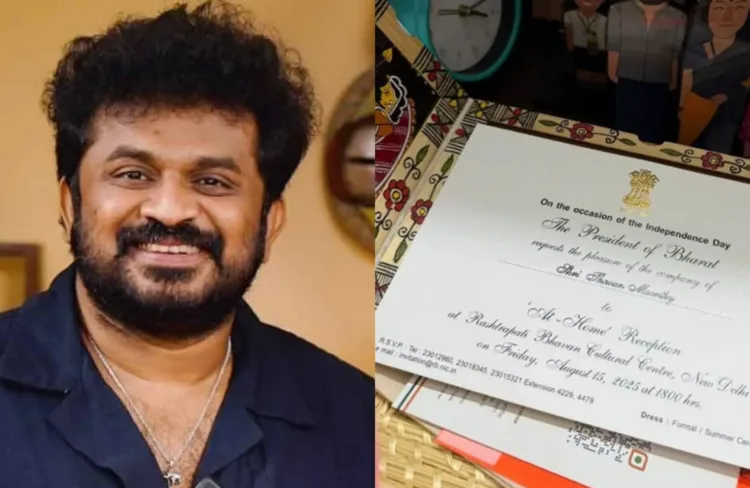 On the occasion of the Independence Day
The President of Bharat
requests the pleasure of the company of
Shri
to
'At-Home' Reception
at Rashtrapati Bhavan Cultural Centre, New Delhi
on Friday, August 15, 2025 at 1800 hrs.
R.S.V.P. Tel : 23012960, 23018345, 23015321 Extension 4229, 4479
mail : invitation@rb.nic.in
Dress : Formal / Summer